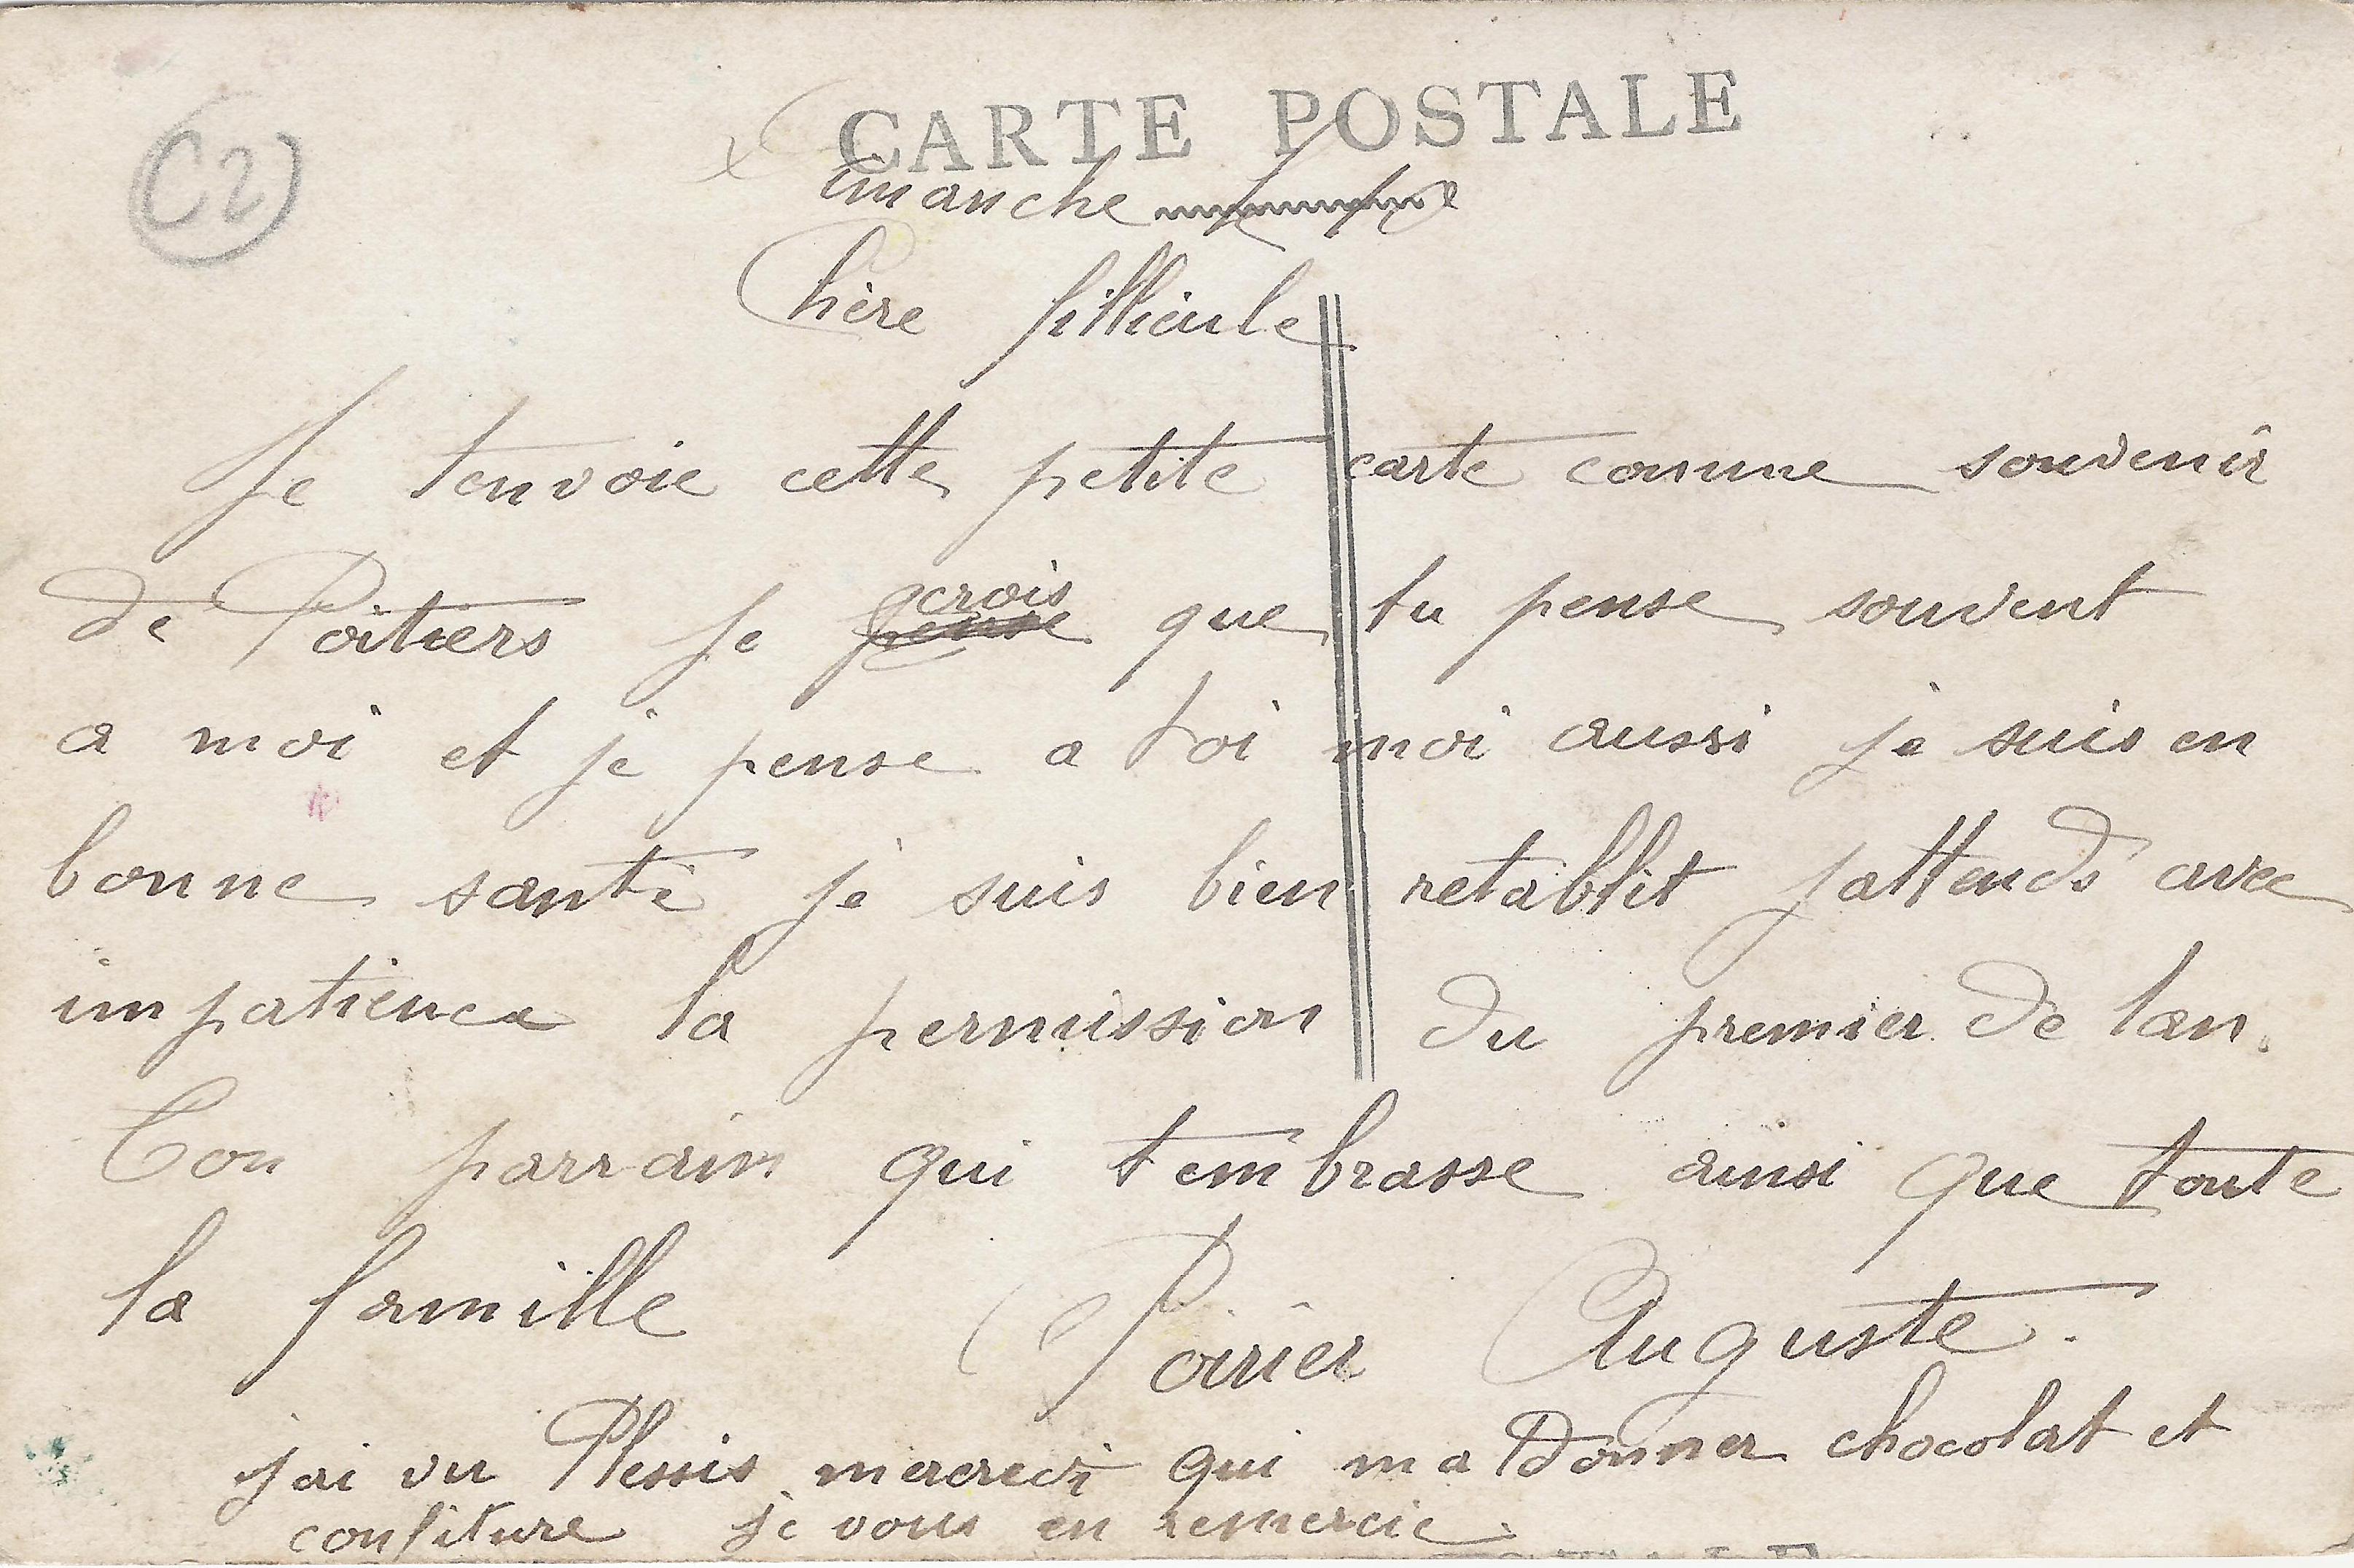 C2
CARTE POSTALE
Dimanche
Chère fillieule
Je tenvoie cette petite carte comme souvenir
de Poitiers je pense crois que tu pense souvent
a moi et je pense a toi moi aussi je suis en
bonne santé je suis bien retablit jattends avec
impatience la permission du premier de lan.
Ton parrain qui tembrasse ainsi que toute
la famille Poirier Auguste.
jai vu Plessis mercredi qui ma donner chocolat et
confiture je vous en remercie.